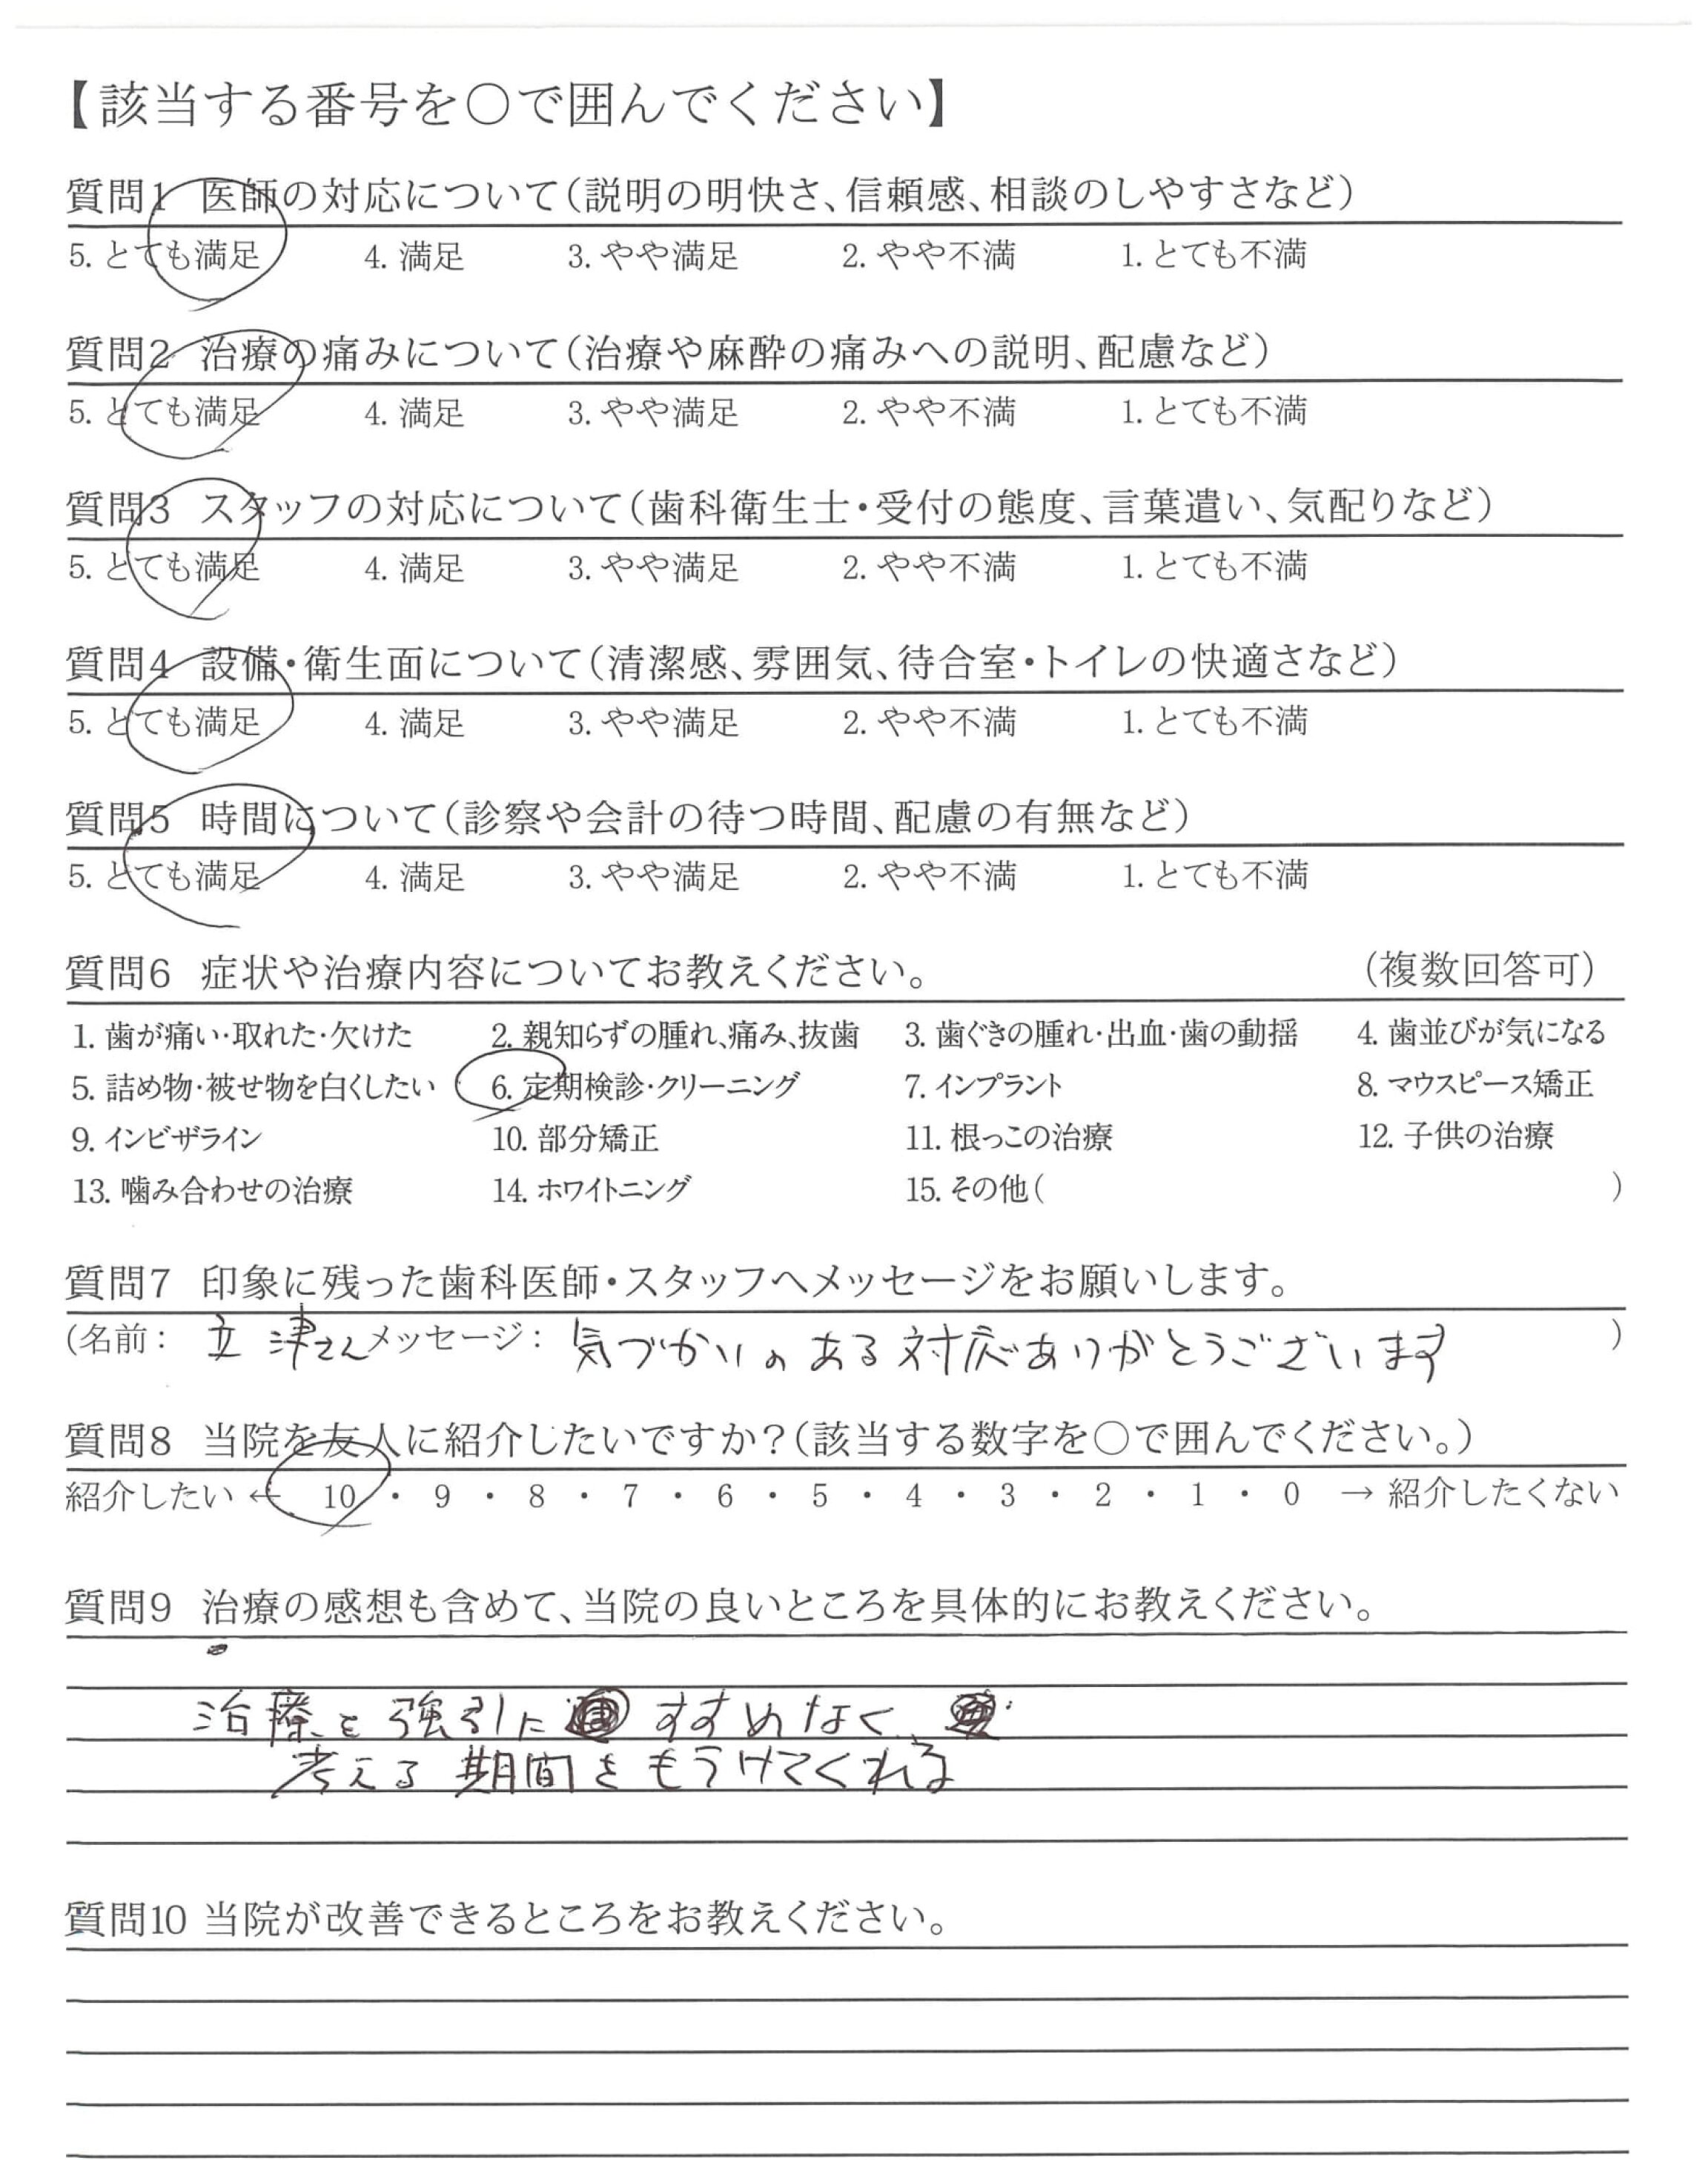 【該当する番号を○で囲んでください】
質問1 医師の対応について(説明の明快さ、信頼感、相談のしやすさなど)
5. とても満足 4. 満足 3. やや満足 2. やや不満 1. とても不満
質問2 治療の痛みについて(治療や麻酔の痛みへの説明、配慮など)
5. とても満足 4. 満足 3. やや満足 2. やや不満 1. とても不満
質問3 スタッフの対応について(歯科衛生士・受付の態度、言葉遣い、気配りなど)
5. とても満足 4. 満足 3. やや満足 2. やや不満 1. とても不満
質問4 設備・衛生面について(清潔感、雰囲気、待合室・トイレの快適さなど)
5. とても満足 4. 満足 3. やや満足 2. やや不満 1. とても不満
質問5 時間について(診察や会計の待つ時間、配慮の有無など)
5. とても満足 4. 満足 3. やや満足 2. やや不満 1. とても不満
質問6 症状や治療内容についてお教えください。 (複数回答可)
1. 歯が痛い・取れた・欠けた 2. 親知らずの腫れ、痛み、抜歯 3. 歯ぐきの腫れ・出血・歯の動揺 4. 歯並びが気になる
5. 詰め物・被せ物を白くしたい 6. 定期検診・クリーニング 7. インプラント 8. マウスピース矯正
9. インビザライン 10. 部分矯正 11. 根っこの治療 12. 子供の治療
13. 噛み合わせの治療 14. ホワイトニング 15. その他( )
質問7 印象に残った歯科医師・スタッフへメッセージをお願いします。
(名前: 立津さん メッセージ: 気づかいのある対応ありがとうございます )
質問8 当院を友人に紹介したいですか?(該当する数字を○で囲んでください。)
紹介したい ← 10 ・ 9 ・ 8 ・ 7 ・ 6 ・ 5 ・ 4 ・ 3 ・ 2 ・ 1 ・ 0 → 紹介したくない
質問9 治療の感想も含めて、当院の良いところを具体的にお教えください。
治療を強引にすすめなく
考える期間をもうけてくれる
質問10 当院が改善できるところをお教えください。